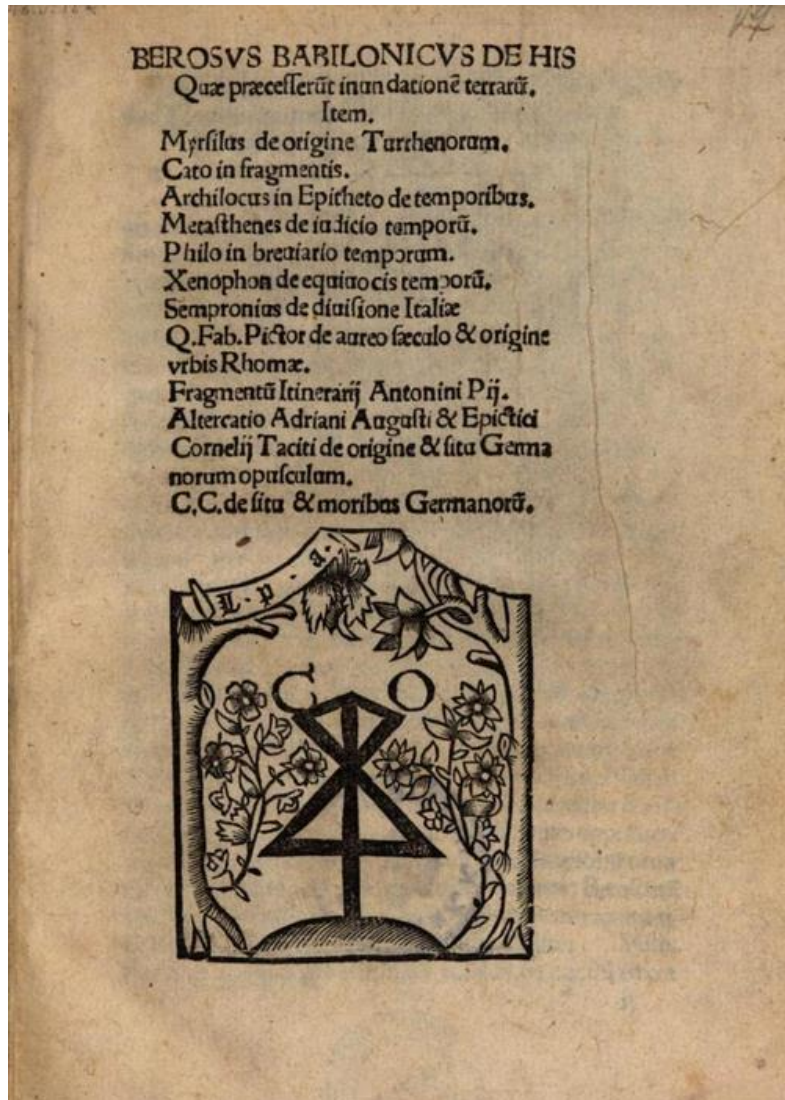 BEROSVS BABILONICVS DE HIS
Quæ præcesserūt inundationē terrarū.
Item.
Myrsilus de origine Turrhenorum.
Cato in fragmentis.
Archilocus in Epitheto de temporibus.
Metasthenes de iudicio temporū.
Philo in breuiario temporum.
Xenophon de equiuocis temporū.
Sempronius de diuisione Italiæ
Q. Fab. Pictor de aureo sæculo & origine
vrbis Rhomæ.
Fragmentū Itinerarij Antonini Pij.
Altercatio Adriani Augusti & Epictici
Cornelij Taciti de origine & situ Germa
norum opusculum.
C.C. de situ & moribus Germanorū.
L · P · B ·
C O